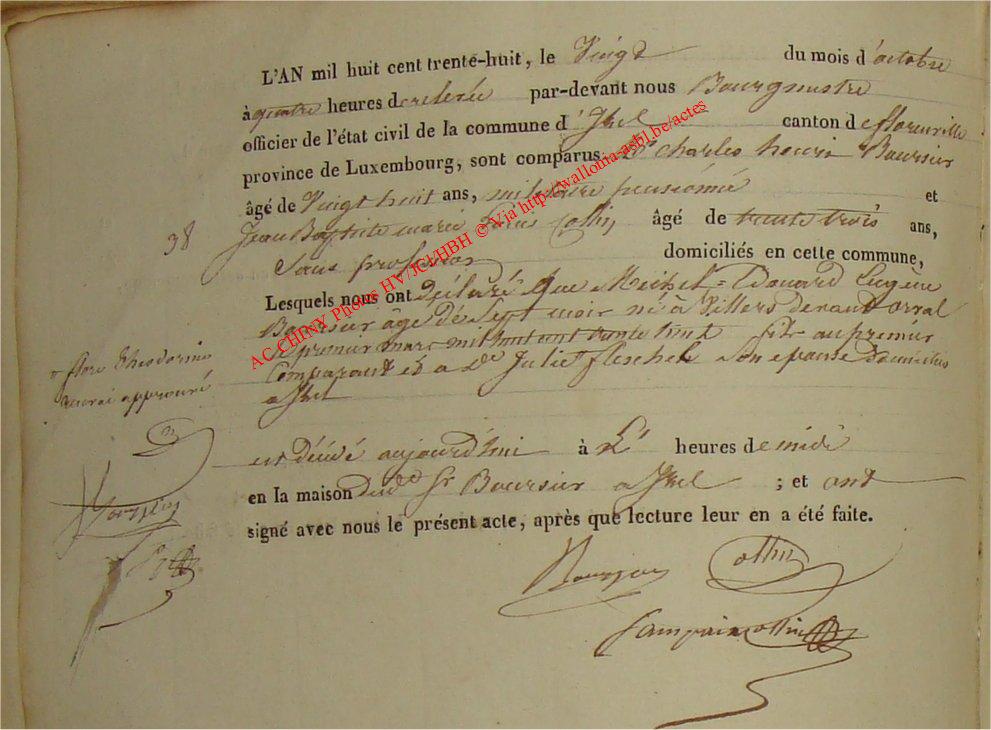 L'AN mil huit cent trente-huit, le Vingt du mois d'octobre
à quatre heures de relevée par-devant nous Bourgmestre
officier de l'état civil de la commune d'Izel canton de florenville
province de Luxembourg, sont comparus Sr Charles henri Boursier
âgé de Vingt huit ans, militaire pensionné et
38 Jean Baptiste marie Collin âgé de trente trois ans,
Sans profession domiciliés en cette commune,
Lesquels nous ont déclaré que Michel = Edouard Eugène
Boursier âgé de Sept mois né à Villers devant orval
le premier mars mil huit cent trente huit fils au premier
Comparant et a de Julie = son epouse domiciliés
a Izel
flore theodorine
approuvé
est décédé aujourd'hui à heures de midi
en la maison dud. Sr Boursier a Izel ; et ont
signé avec nous le présent acte, après que lecture leur en a été faite.
Boursier Collin
AC CHINY Photos HV/JCI/HBH © Via http://wallonia-asbl.be/actes